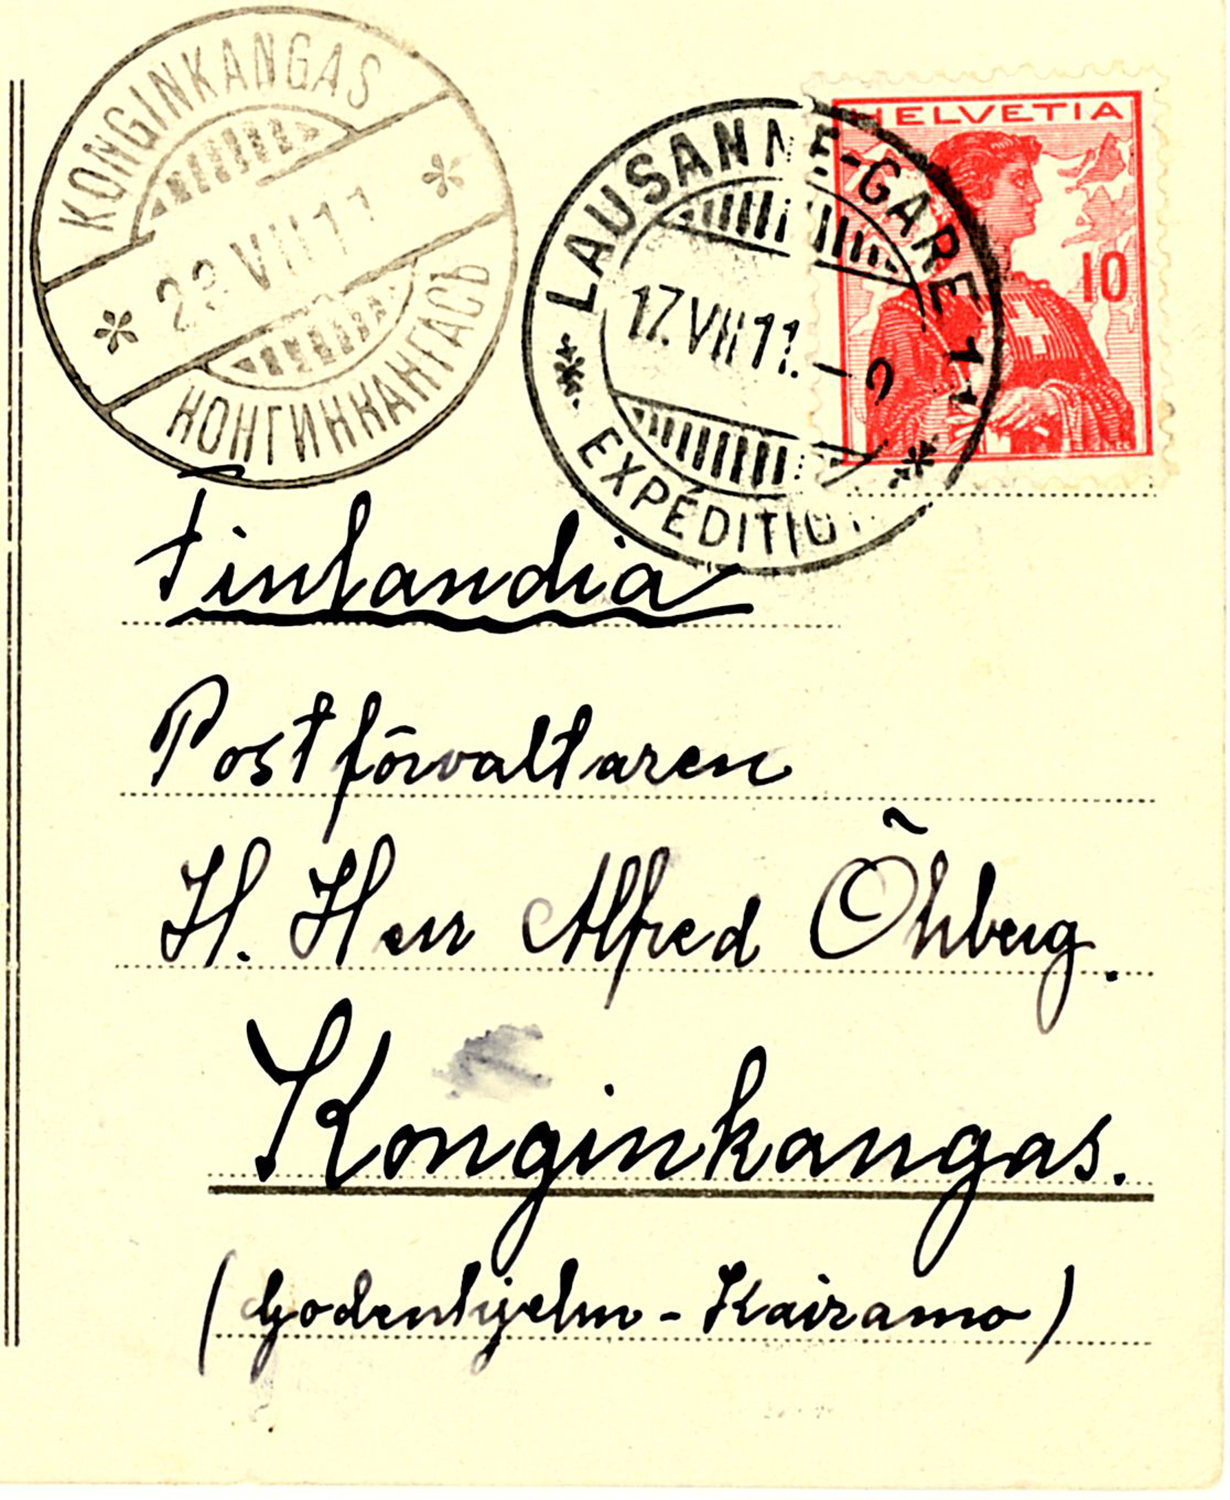 KONGINKANGAS
VII 11
КОНГИНКАНГАСЪ
LAUSANNE-GARE
17.VII 11.
EXPÉDITION
HELVETIA
10
Finlandia
Postförvaltaren
H. Herr Alfred Õhberg.
Konginkangas.
(Godenhjelm - Kairamo)